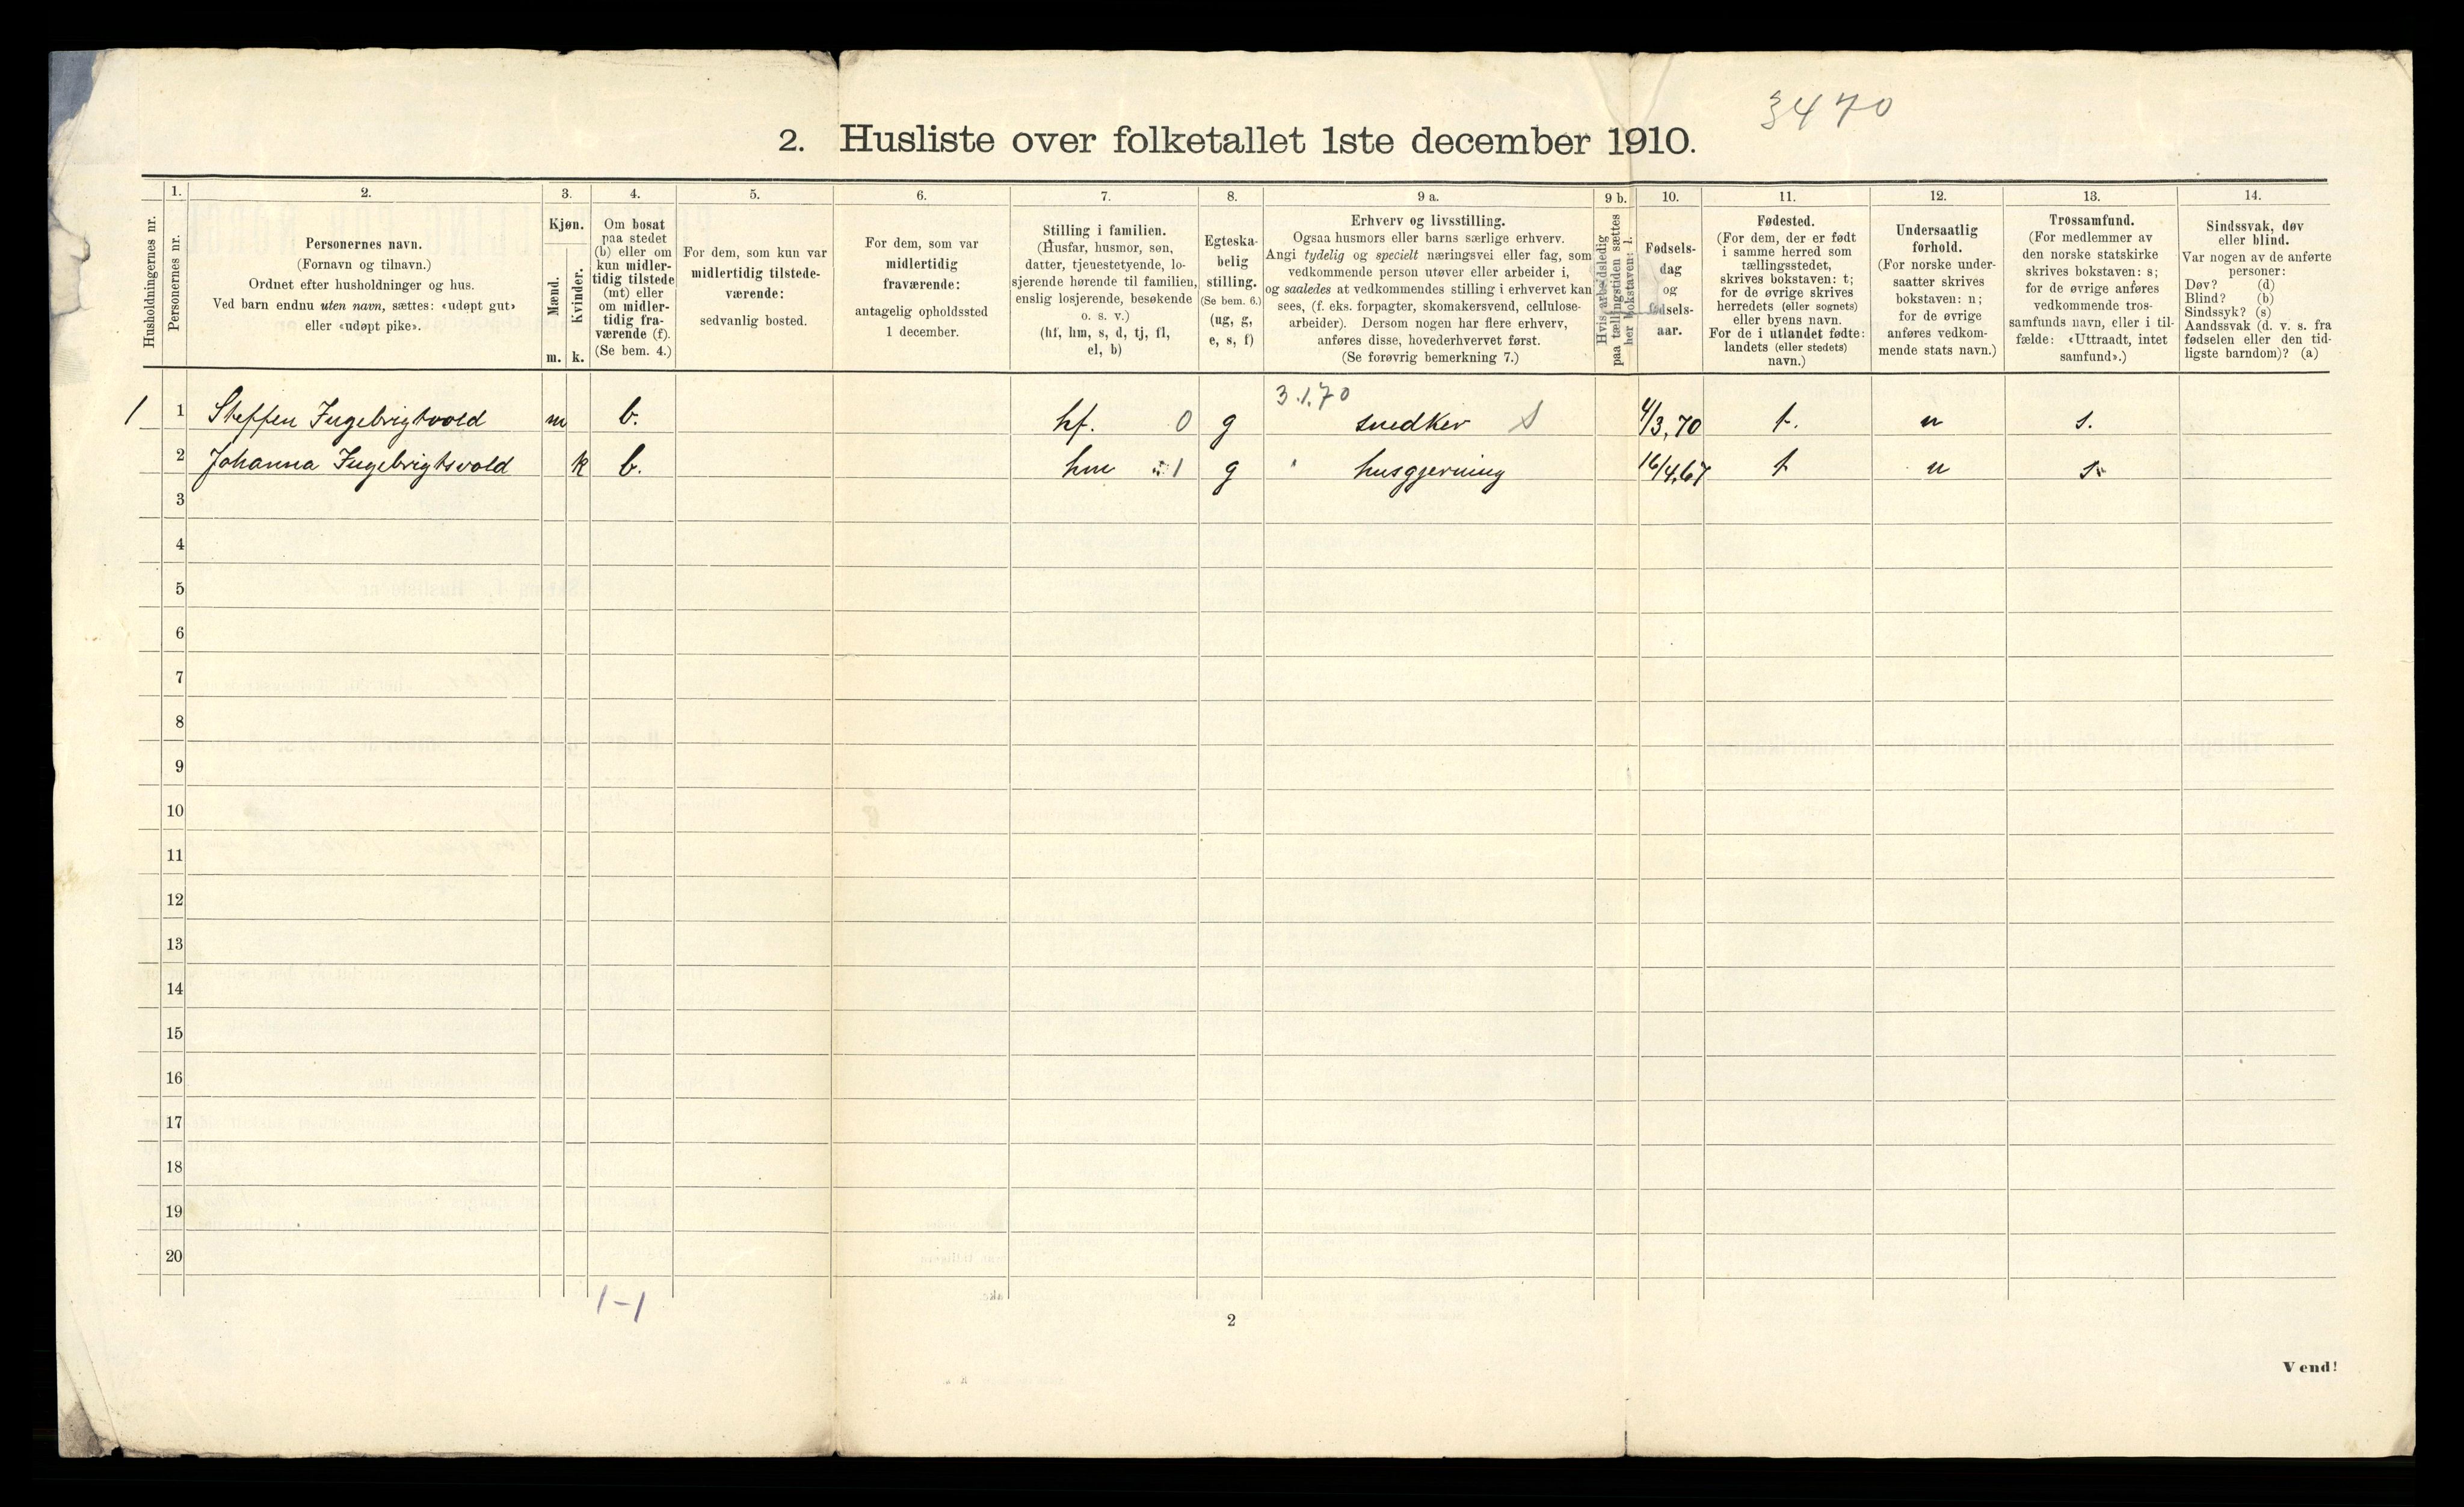 3470
2. Husliste over folketallet 1ste december 1910.
Husholdningernes nr.
1.
Personernes nr.
2.
Personernes navn.
(Fornavn og tilnavn.)
Ordnet efter husholdninger og hus.
Ved barn endnu uten navn, sættes: «udøpt gut»
eller «udøpt pike».
3.
Kjøn.
Mænd.
Kvinder.
m. k.
4.
Om bosat
paa stedet
(b) eller om
kun midler-
tidig tilstede
(mt) eller
om midler-
tidig fra-
værende (f).
(Se bem. 4.)
5.
For dem, som kun var
midlertidig tilstede-
værende:
sedvanlig bosted.
6.
For dem, som var
midlertidig
fraværende:
antagelig opholdssted
1 december.
7.
Stilling i familien.
(Husfar, husmor, søn,
datter, tjenestetyende, lo-
sjerende hørende til familien,
enslig losjerende, besøkende
o. s. v.)
(hf, hm, s, d, tj, fl,
el, b)
8.
Egteska-
belig
stilling.
(Se bem. 6.)
(ug, g,
e, s, f)
9 a.
Erhverv og livsstilling.
Ogsaa husmors eller barns særlige erhverv.
Angi tydelig og specielt næringsvei eller fag, som
vedkommende person utøver eller arbeider i,
og saaledes at vedkommendes stilling i erhvervet kan
sees, (f. eks. forpagter, skomakersvend, cellulose-
arbeider). Dersom nogen har flere erhverv,
anføres disse, hovederhvervet først.
(Se forøvrig bemerkning 7.)
9 b.
Hvis arbeidsledig
paa tællingstiden sættes
her bokstaven: l.
10.
Fødsels-
dag
og
fødsels-
aar.
11.
Fødested.
(For dem, der er født
i samme herred som
tællingsstedet,
skrives bokstaven: t;
for de øvrige skrives
herredets (eller sognets)
eller byens navn.
For de i utlandet fødte:
landets (eller stedets)
navn.)
12.
Undersaatlig
forhold.
(For norske under-
saatter skrives
bokstaven: n;
for de øvrige
anføres vedkom-
mende stats navn.)
13.
Trossamfund.
(For medlemmer av
den norske statskirke
skrives bokstaven: s;
for de øvrige anføres
vedkommende tros-
samfunds navn, eller i til-
fælde: «Uttraadt, intet
samfund».)
14.
Sindssvak, døv
eller blind.
Var nogen av de anførte
personer:
Døv? (d)
Blind? (b)
Sindssyk? (s)
Aandssvak (d. v. s. fra
fødselen eller den tid-
ligste barndom)? (a)
3.1.70
1 1 Steffen Ingebrigtvold m b. hf. 0 g snedker S 4/3,70 t. n s.
2 Johanna Ingebrigtsvold k b. hm 1 g husgjerning 16/4,67 t n s.
3
4
5
6
7
8
9
10
11
12
13
14
15
16
17
18
19
20
1-1
2
Vend!